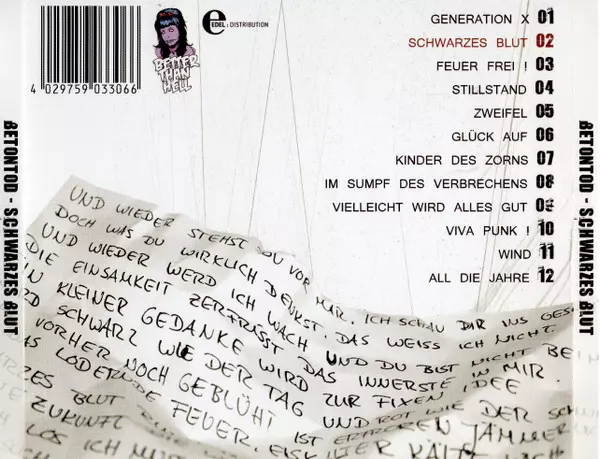 4 029759 033066
BETTER
THAN
HELL
EDEL : DISTRIBUTION
GENERATION X 01
SCHWARZES BLUT 02
FEUER FREI ! 03
STILLSTAND 04
ZWEIFEL 05
GLÜCK AUF 06
KINDER DES ZORNS 07
IM SUMPF DES VERBRECHENS 08
VIELLEICHT WIRD ALLES GUT 09
VIVA PUNK ! 10
WIND 11
ALL DIE JAHRE 12
BETONTOD - SCHWARZES BLUT
BETONTOD - SCHWARZES BLUT
UND WIEDER STEHST DU VOR MIR. ICH SCHAU DIR INS GESI
DOCH WAS DU WIRKLICH DENKST. DAS WEISS ICH NICHT.
UND WIEDER WERD ICH WACH UND DU BIST NICHT BEI
DIE EINSAMKEIT ZERFRISST DAS INNERSTE IN MIR.
IN KLEINER GEDANKE WIRD ZUR FIXEN IDEE
RD SCHWARZ WIE DER TAG UND ROT WIE DER SCHN
VORHER NOCH GEBLÜHT IST ERFROREN
AS LODERNDE FEUER. EISK JÄMMER
ZES BLUT
ZUKUNFT
LOS ICH